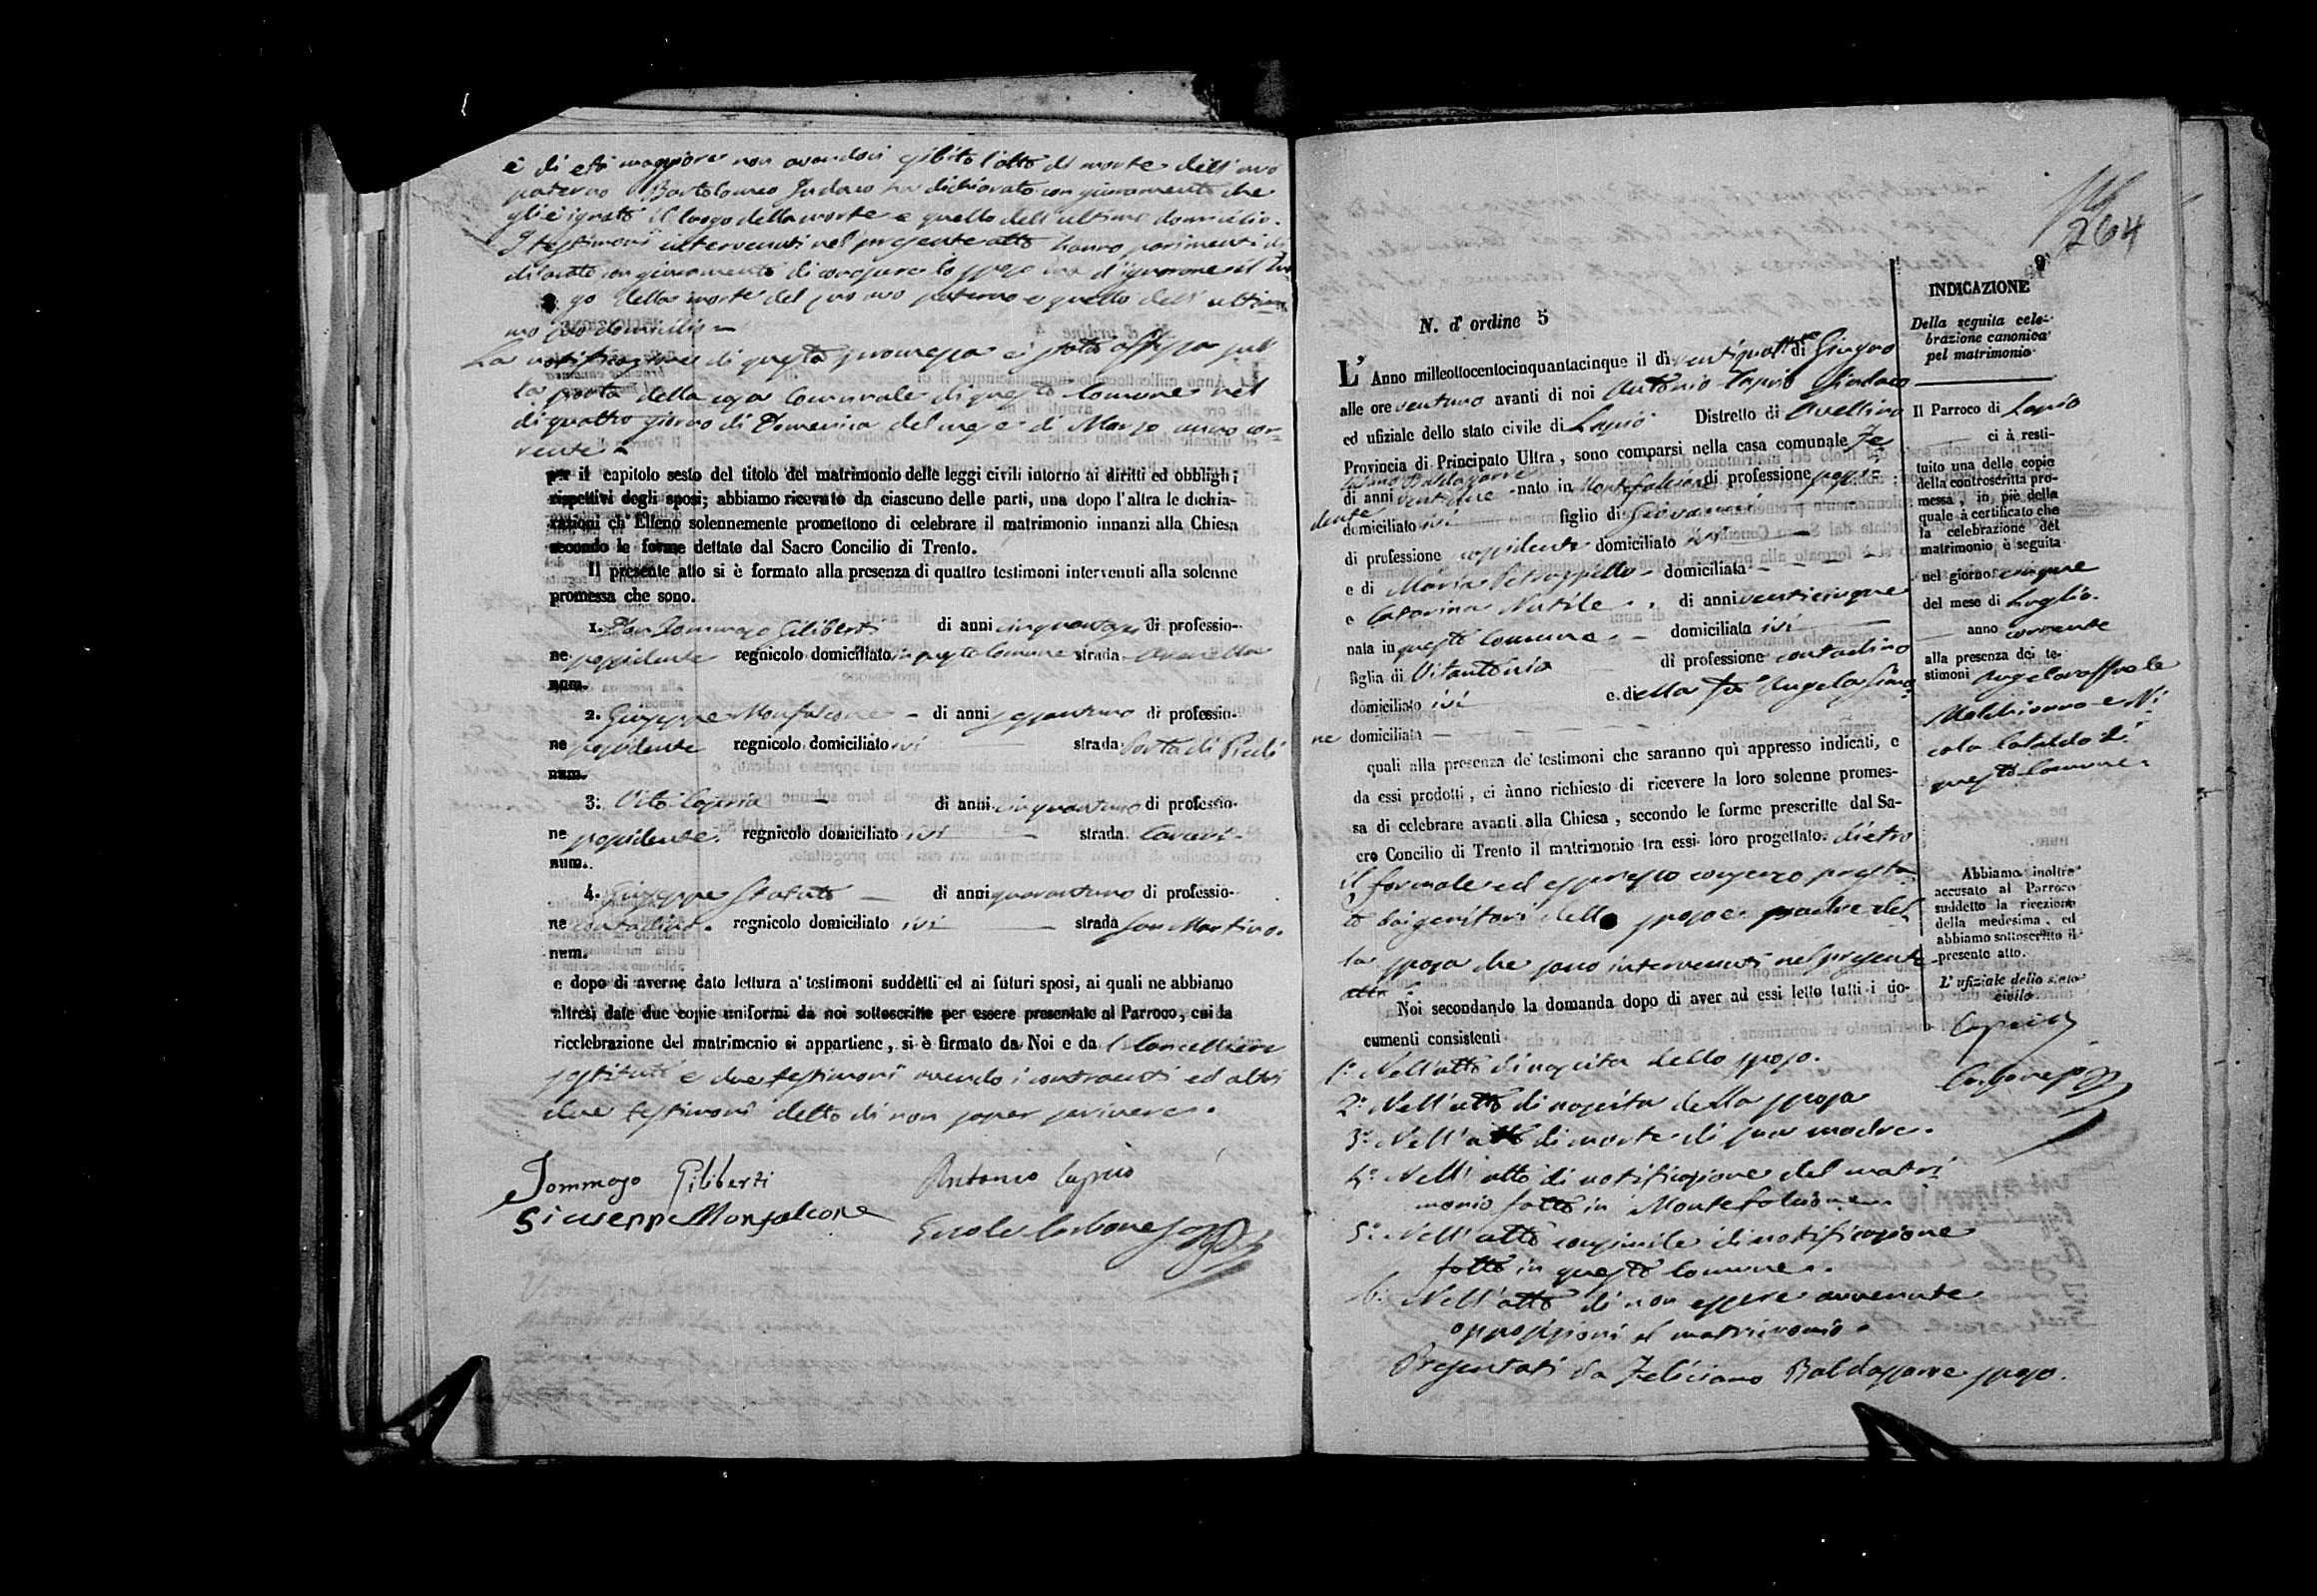 è di età maggiore non avendosi esibito l'atto di morte dell'avo
paterno Bartolomeo ha dichiarato con giuramento che
gli è ignoto il luogo della morte e quello dell'ultimo domicilio.
I testimoni intervenuti nel presente atto hanno parimenti di
chiarato con giuramento di conoscere lo sposo d'ignorare il luo
go della morte del suo avo paterno e quello dell'ultim
mo suo domicilio -
La notificazione di questa promessa è stata affissa sul
la porta della casa Comunale di questo Comune nel
dì quattro giorno di Domenica del mese di Marzo anno cor-
rente -
per il capitolo sesto del titolo del matrimonio delle leggi civili intorno ai diritti ed obblighi
rispettivi degli sposi; abbiamo ricevuto da ciascuno delle parti, una dopo l'altra le dichia-
razioni ch'Elleno solennemente promettono di celebrare il matrimonio innanzi alla Chiesa
secondo le forme dettate dal Sacro Concilio di Trento.
Il presente atto si è formato alla presenza di quattro testimoni intervenuti alla solenne
promessa che sono.
1. Don Tommaso Giliberti di anni di professio-
ne possidente regnicolo domiciliato in questo Comune strada
num.
2. Giuseppe Monfalcone - di anni di professio-
ne possidente regnicolo domiciliato ivi strada Porta di Piedi
num.
3. Vito di anni cinquantuno di professio-
ne possidente. regnicolo domiciliato ivi — strada
num.
4. Giuseppe — di anni quarantuno di professio-
ne contadino. regnicolo domiciliato ivi — strada San Martino.
num.
e dopo di averne dato lettura a' testimoni suddetti ed ai futuri sposi, ai quali ne abbiamo
altresì date due copie uniformi da noi sottoscritte per essere presentate al Parroco, cui la
ricelebrazione del matrimonio si appartiene, si è firmato da Noi e da l Cancelliere
sostituto e due testimoni avendo i contraenti ed altri
due testimoni detto di non saper scrivere.
Tommaso Giliberti Antonio Caprio
Giuseppe Monfalcone Ercole Carbone
264
9
N. d' ordine 5
L' Anno milleottocentocinquantacinque il dì ventiquattro di Giugno
alle ore ventuno avanti di noi Antonio Caprio Sindaco
ed ufiziale dello stato civile di Lapio Distretto di Avellino
Provincia di Principato Ultra, sono comparsi nella casa comunale Fe
liciano Baldassarre
di anni nato in Montefalcione di professione possi
dente
domiciliato ivi — figlio di Giovanni
di professione possidente domiciliato ivi —
e di Maria Petrozziello - domiciliata - - -
e Catarina Nutile . di anni venticinque
nata in questo Comune. - domiciliata ivi —
figlia di Vitantonio di professione contadino
domiciliato ivi e della fu Angela
ne domiciliata —
quali alla presenza de' testimoni che saranno quì appresso indicati, e
da essi prodotti, ci ànno richiesto di ricevere la loro solenne promes-
sa di celebrare avanti alla Chiesa, secondo le forme prescritte dal Sa-
cro Concilio di Trento il matrimonio tra essi loro progettato. dietro
il formale ed espresso consenso presta
to dai genitori dello sposo e padre del
la sposa che sono intervenuti nel presente
atto.
Noi secondando la domanda dopo di aver ad essi letto tutti i do-
cumenti consistenti
1.° Nell'atto di nascita dello sposo.
2.° Nell'atto di nascita della sposa
3.° Nell'atto di morte di sua madre.
4.° Nell'atto di notificazione del matri
monio fatto in Montefalcione.
5.° Nell'atto consimile di notificazione
fatto in questo Comune.
6.° Nell'atto di non essere avvenute
opposizioni al matrimonio.
Presentati da Feliciano Baldassarre sposo.
INDICAZIONE
Della seguita cele-
brazione canonica
pel matrimonio
Il Parroco di Lapio
— ci à resti-
tuito una delle copie
della controscritta pro-
messa, in piè della
quale à certificato che
la celebrazione del
matrimonio, è seguita
nel giorno cinque
del mese di Luglio.
— anno corrente
alla presenza dei te-
stimoni Angelaraffaele
Melchionno e Ni
cola Cataldo di
questo Comune.
Abbiamo inoltre
accusato al Parroco
suddetto la ricezione
della medesima, ed
abbiamo sottoscritto il
presente atto.
L' ufiziale dello stato
civile
Caprio
Carbone